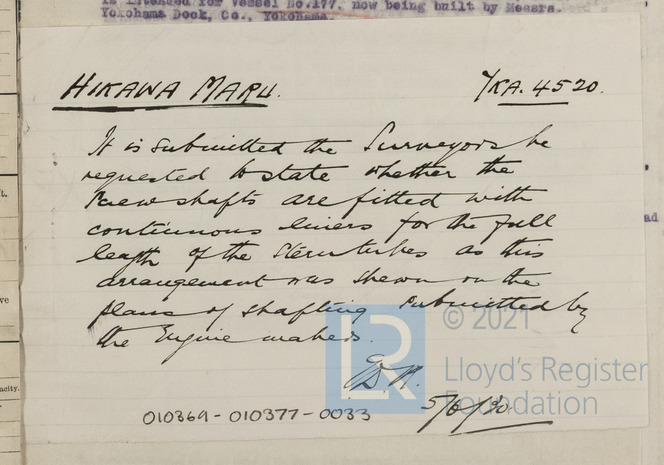 is intended for Vessel No.177, now being built by Messrs.
Yokohama Dock, Co., Yokohama.
HIKAWA MARU.
YKA. 4520.
It is submitted the Surveyors be
requested to state whether the
screwshafts are fitted with
continuous liners for the full
length of the sterntubes as this
arrangement was shewn on the
plans of shafting submitted by
the Engine makers.
5/6/30.
010369-010377-0033
LR
© 2021
Lloyd's Register
Foundation
ft.
ve
acity.
ad